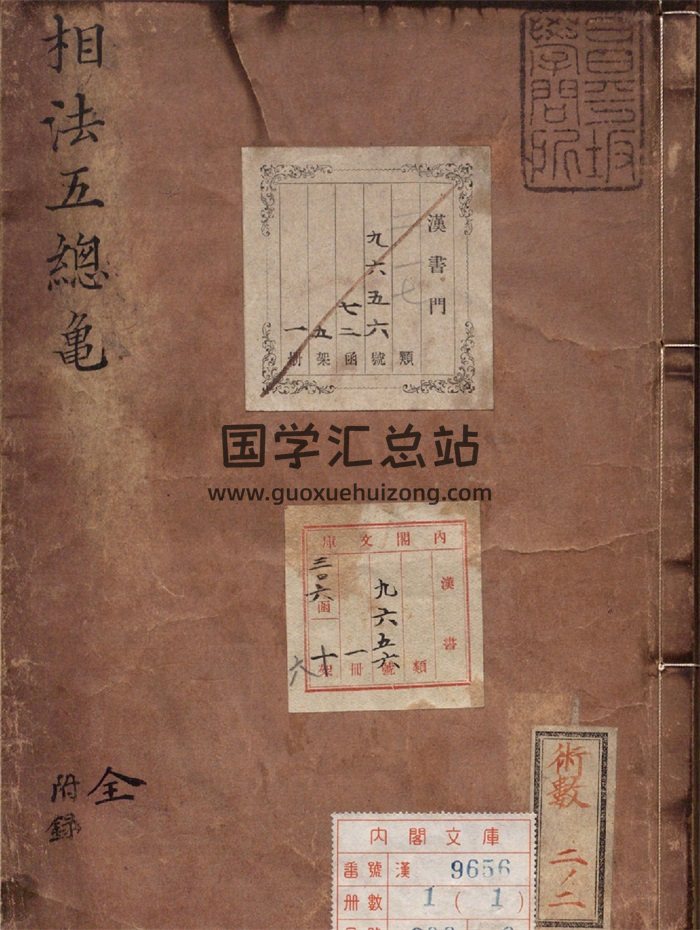 相法五總亀
全
附録
昌平坂
學問所
漢書門
類
九六五六號
七二函
五架
一冊
国学汇总站
www.guoxuehuizong.com
內閣文庫
漢書
類
九六五六號
一冊
三〇六函
十架
六
術數
二ノ二
內閣文庫
番號 漢 9656
冊數 1(1)